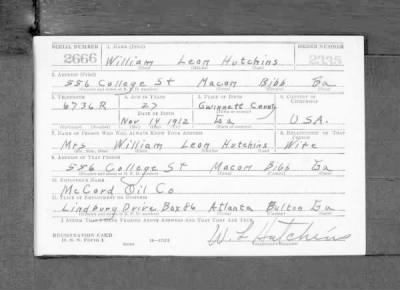 SERIAL NUMBER 1. NAME (Print) ORDER NUMBER
2666 William Leon Hutchins 2335
(First) (Middle) (Last)
2. ADDRESS (Print)
556 College St Macon Bibb Ga
3. TELEPHONE 4. AGE IN YEARS 5. PLACE OF BIRTH 6. COUNTRY OF CITIZENSHIP
6736 R 27 Gwinnett County
DATE OF BIRTH
Nov 14 1912 Ga U.S.A.
7. NAME OF PERSON WHO WILL ALWAYS KNOW YOUR ADDRESS 8. RELATIONSHIP OF THAT PERSON
Mrs William Leon Hutchins Wife
9. ADDRESS OF THAT PERSON
556 College St Macon Bibb Ga
10. EMPLOYER'S NAME
McCord Oil Co
11. PLACE OF EMPLOYMENT OR BUSINESS
Lindburg Drive Box 86 Atlanta Fulton Ga
I AFFIRM THAT I HAVE VERIFIED ABOVE ANSWERS AND THAT THEY ARE TRUE.
REGISTRATION CARD
D. S. S. FORM 1
W. L. Hutchins